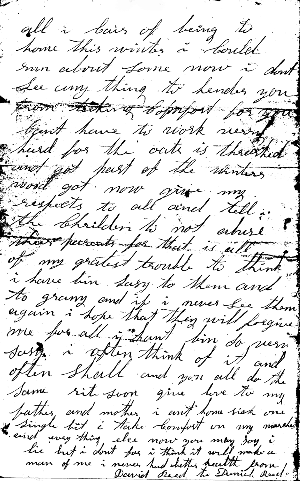 all i cair of being to
home this winter i could
run about some now i dont
see any thing to hender you
from comfort for you
have to work very
hard for the oats is thrashed
and got part of the winters
wood got now give my
respects to all and tell
the Children to not abuse
their parents for that is all
of my gratest trouble to think
i have bin sasy to them and
to grany and if i never see them
again i hope that they will forgive
me for all i have bin so very
sasy i often think of it and
often shall and you all do the
same rite soon give love to my
father and mother i aint home sick one
single bit i take comfort on my marches
and every thing else now you may say i
lie but i dont for i think it will make a
man of me i never had better health from
Daniel Reed to Daniel Reed